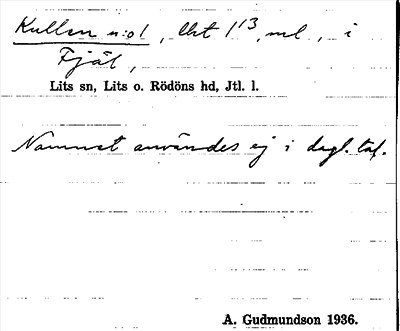 Kullen n:o 1, lht 1/3 mtl., i
Fjäl,
Lits sn, Lits o. Rödöns hd, Jtl. l.
Namnet användes ej i dagl. tal.
A. Gudmundson 1936.